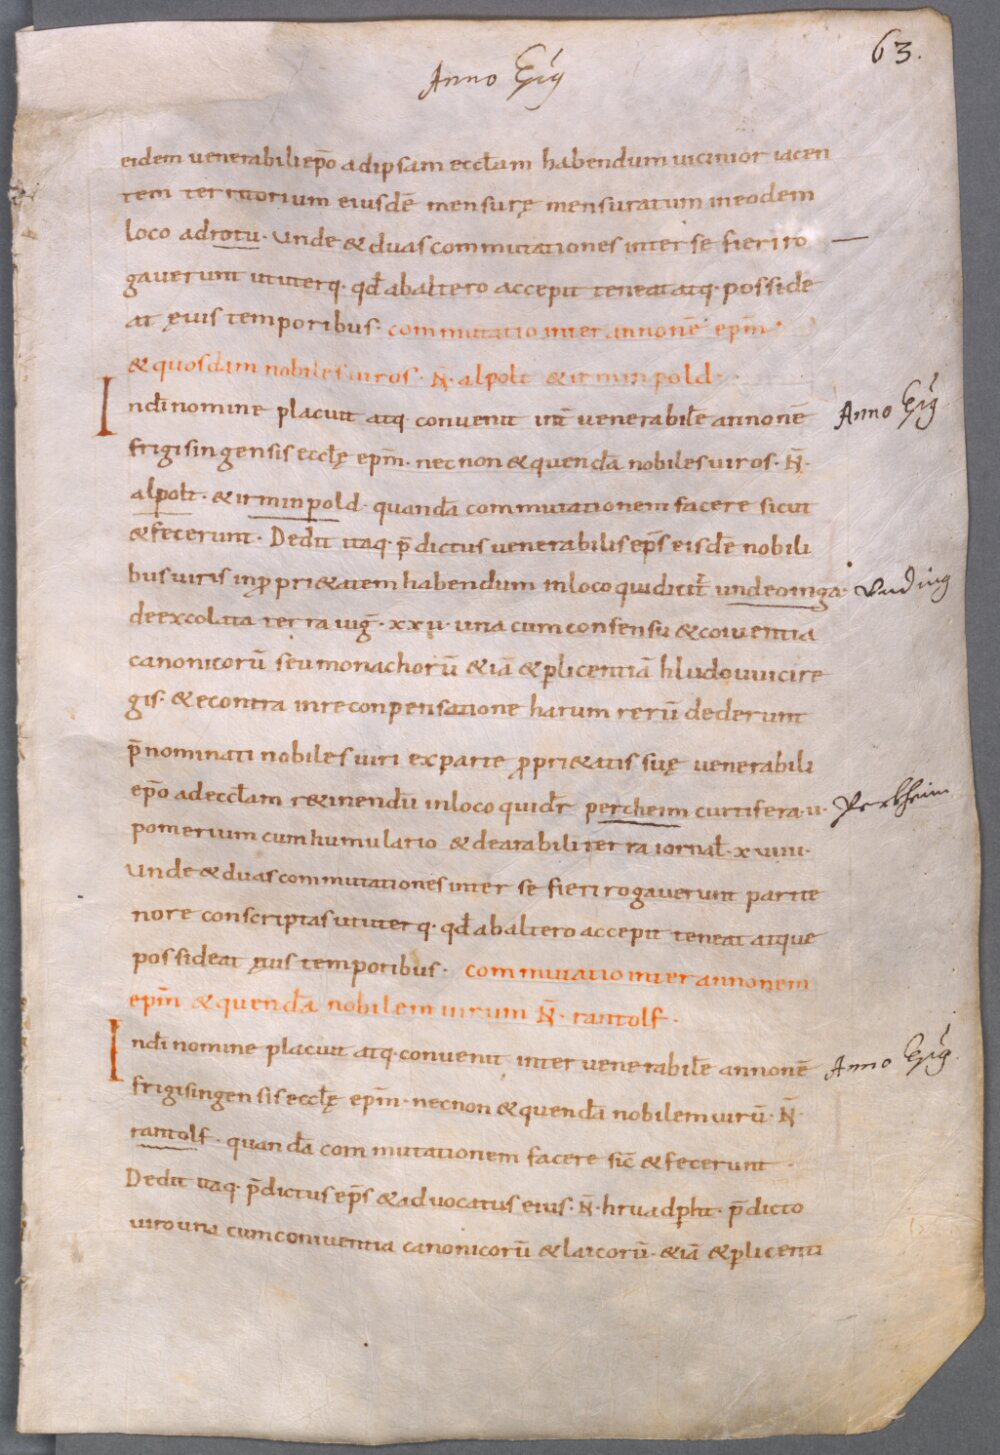 63.
Anno Ep̄s
eidem venerabili ep̄o ad ipsam eccl̄am habendum vicinior iacen
tem territorium eiusdē mensurę mensuratum in eodem
loco ad rotu. Unde & duas commutationes inter se fieri ro
gaverunt ut uterq. qd̄ ab altero accepit teneat atq. posside
at ęvis temporibus. commutatio inter annonē ep̄m
& quosdam nobiles viros. N̄. alpolt & irminpold.
In dī nomine placuit atq. convenit int̄ venerabilē annonē
Anno
frigisingensis eccl̄ę ep̄m. necnon & quendā nobiles viros. N̄.
alpolt. & irminpold. quandā commutationem facere sicut
& fecerunt. Dedit itaq. p̄dictus venerabilis ep̄s eisdē nobili
bus viris in propri&atem habendum in loco qui dicit̄ undeoinga.
Unding
de excolata terra iūg. xxv. una cum consensu & coiventia
canonicorū seu monachorū & iā & p licentiā hludouuici re
gis. & econtra in reconpensatione harum rerū dederunt
p̄nominati nobiles viri ex parte propri&atis suę venerabili
ep̄o ad eccl̄am r&inendū in loco qui dr̄ percheim curtifera. v.
Perkheim
pomerium cum humulario & de arabili terra iornal̄. xviiii.
Unde & duas commutationes inter se fieri rogaverunt parite
nore conscriptas ut uterq. qd̄ ab altero accepit teneat atque
possideat ęvis temporibus. commutatio inter annonem
ep̄m & quendā nobilem virum N̄. rantolf.
In dī nomine placuit atq. convenit inter venerabilē annonē
Anno
frigisingensis eccl̄ę ep̄m. necnon & quendā nobilem virū. N̄.
rantolf. quandā commutationem facere sic̄ & fecerunt.
Dedit itaq. p̄dictus ep̄s & advocatus eius. N̄. hruadp̄ht. p̄dicto
viro una cum coniventia canonicorū & laicorū. & iā & p licenti